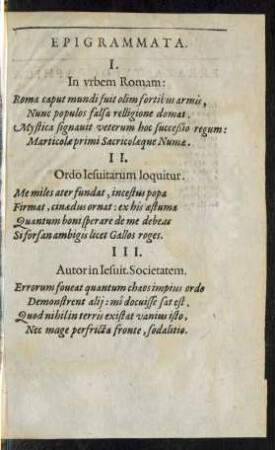 EPIGRAMMATA.
I.
In vrbem Romam:
Roma caput mundi fuit olim fortib' in armis,
Nunc populos falsa relligione domat.
Mystica signauit veterum hoc successio regum:
Marticolæ primi Sacricolæque Numæ.
II.
Ordo Iesuitarum loquitur.
Me miles ater fundat, incestus popa
Firmat, cinædus ornat: ex his æstuma
Quantum boni sperare de me debeas
Si forsan ambigis licet Gallos roges.
III.
Autor in Iesuit. Societatem.
Errorum foueat quantum chaos impius ordo
Demonstrent alij: mî docuisse sat est.
Quod nihil in terris existat vanius isto,
Nec mage perfricta fronte, sodalitio.